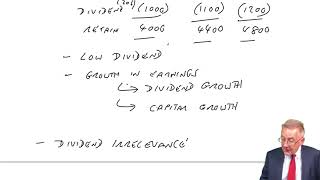 DIVIDEND (20%) (1000) (1100) (1200)
RETAIN 4000 4400 4800
- LOW DIVIDEND
- GROWTH IN EARNINGS
↳ DIVIDEND GROWTH
↳ CAPITAL GROWTH
- 'DIVIDEND IRRELEVANCE'